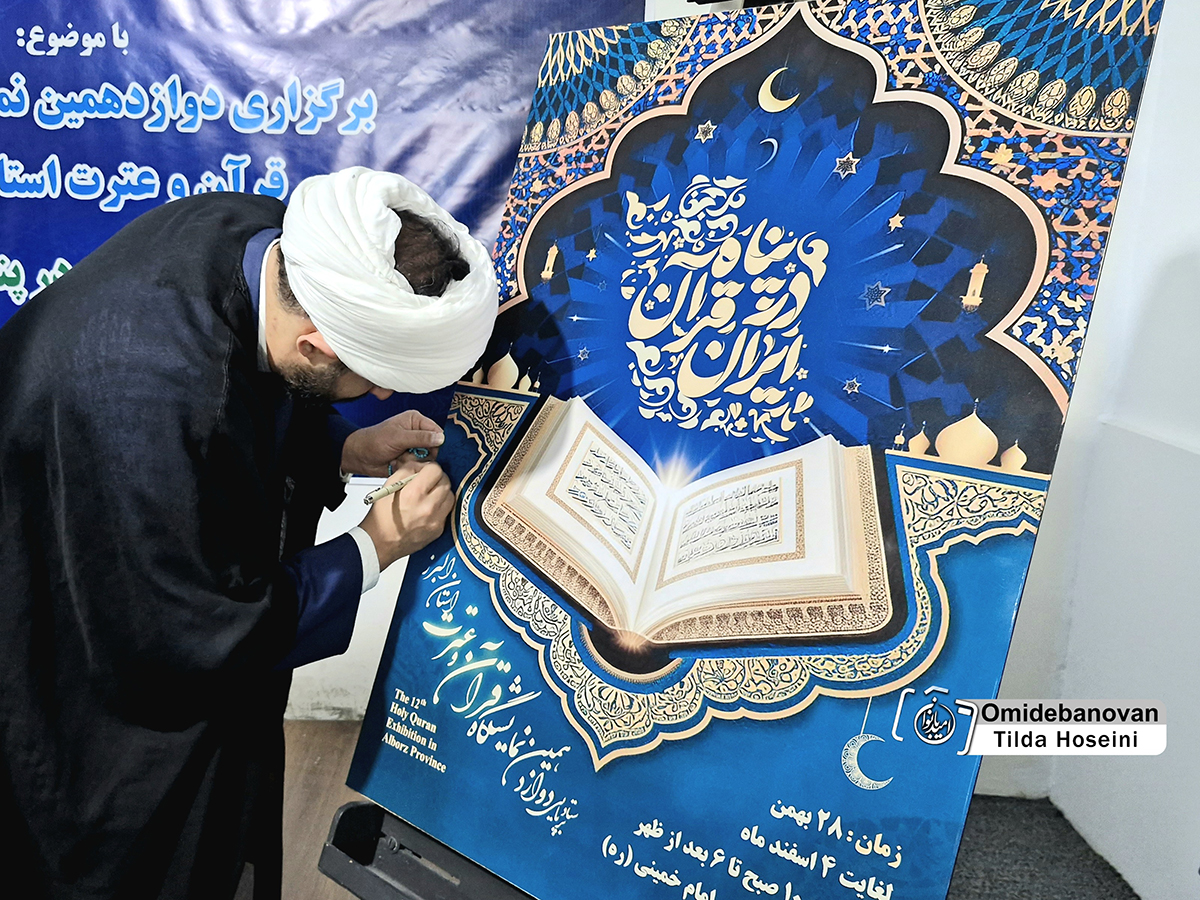 با موضوع:
برگزاری دوازدهمین
قرآن و عترت
در
در پناه
تو قرآن
ایران
The 12th
Holy Quran
Exhibition In
Alborz Province
ستاد برپایی دوازدهمین نمایشگاه
قرآن و عترت
استان البرز
زمان: ۲۸ بهمن
لغایت ۴ اسفند ماه
صبح تا ۶ بعد از ظهر
امام خمینی (ره)
امید بانوان
Omidebanovan
Tilda Hoseini